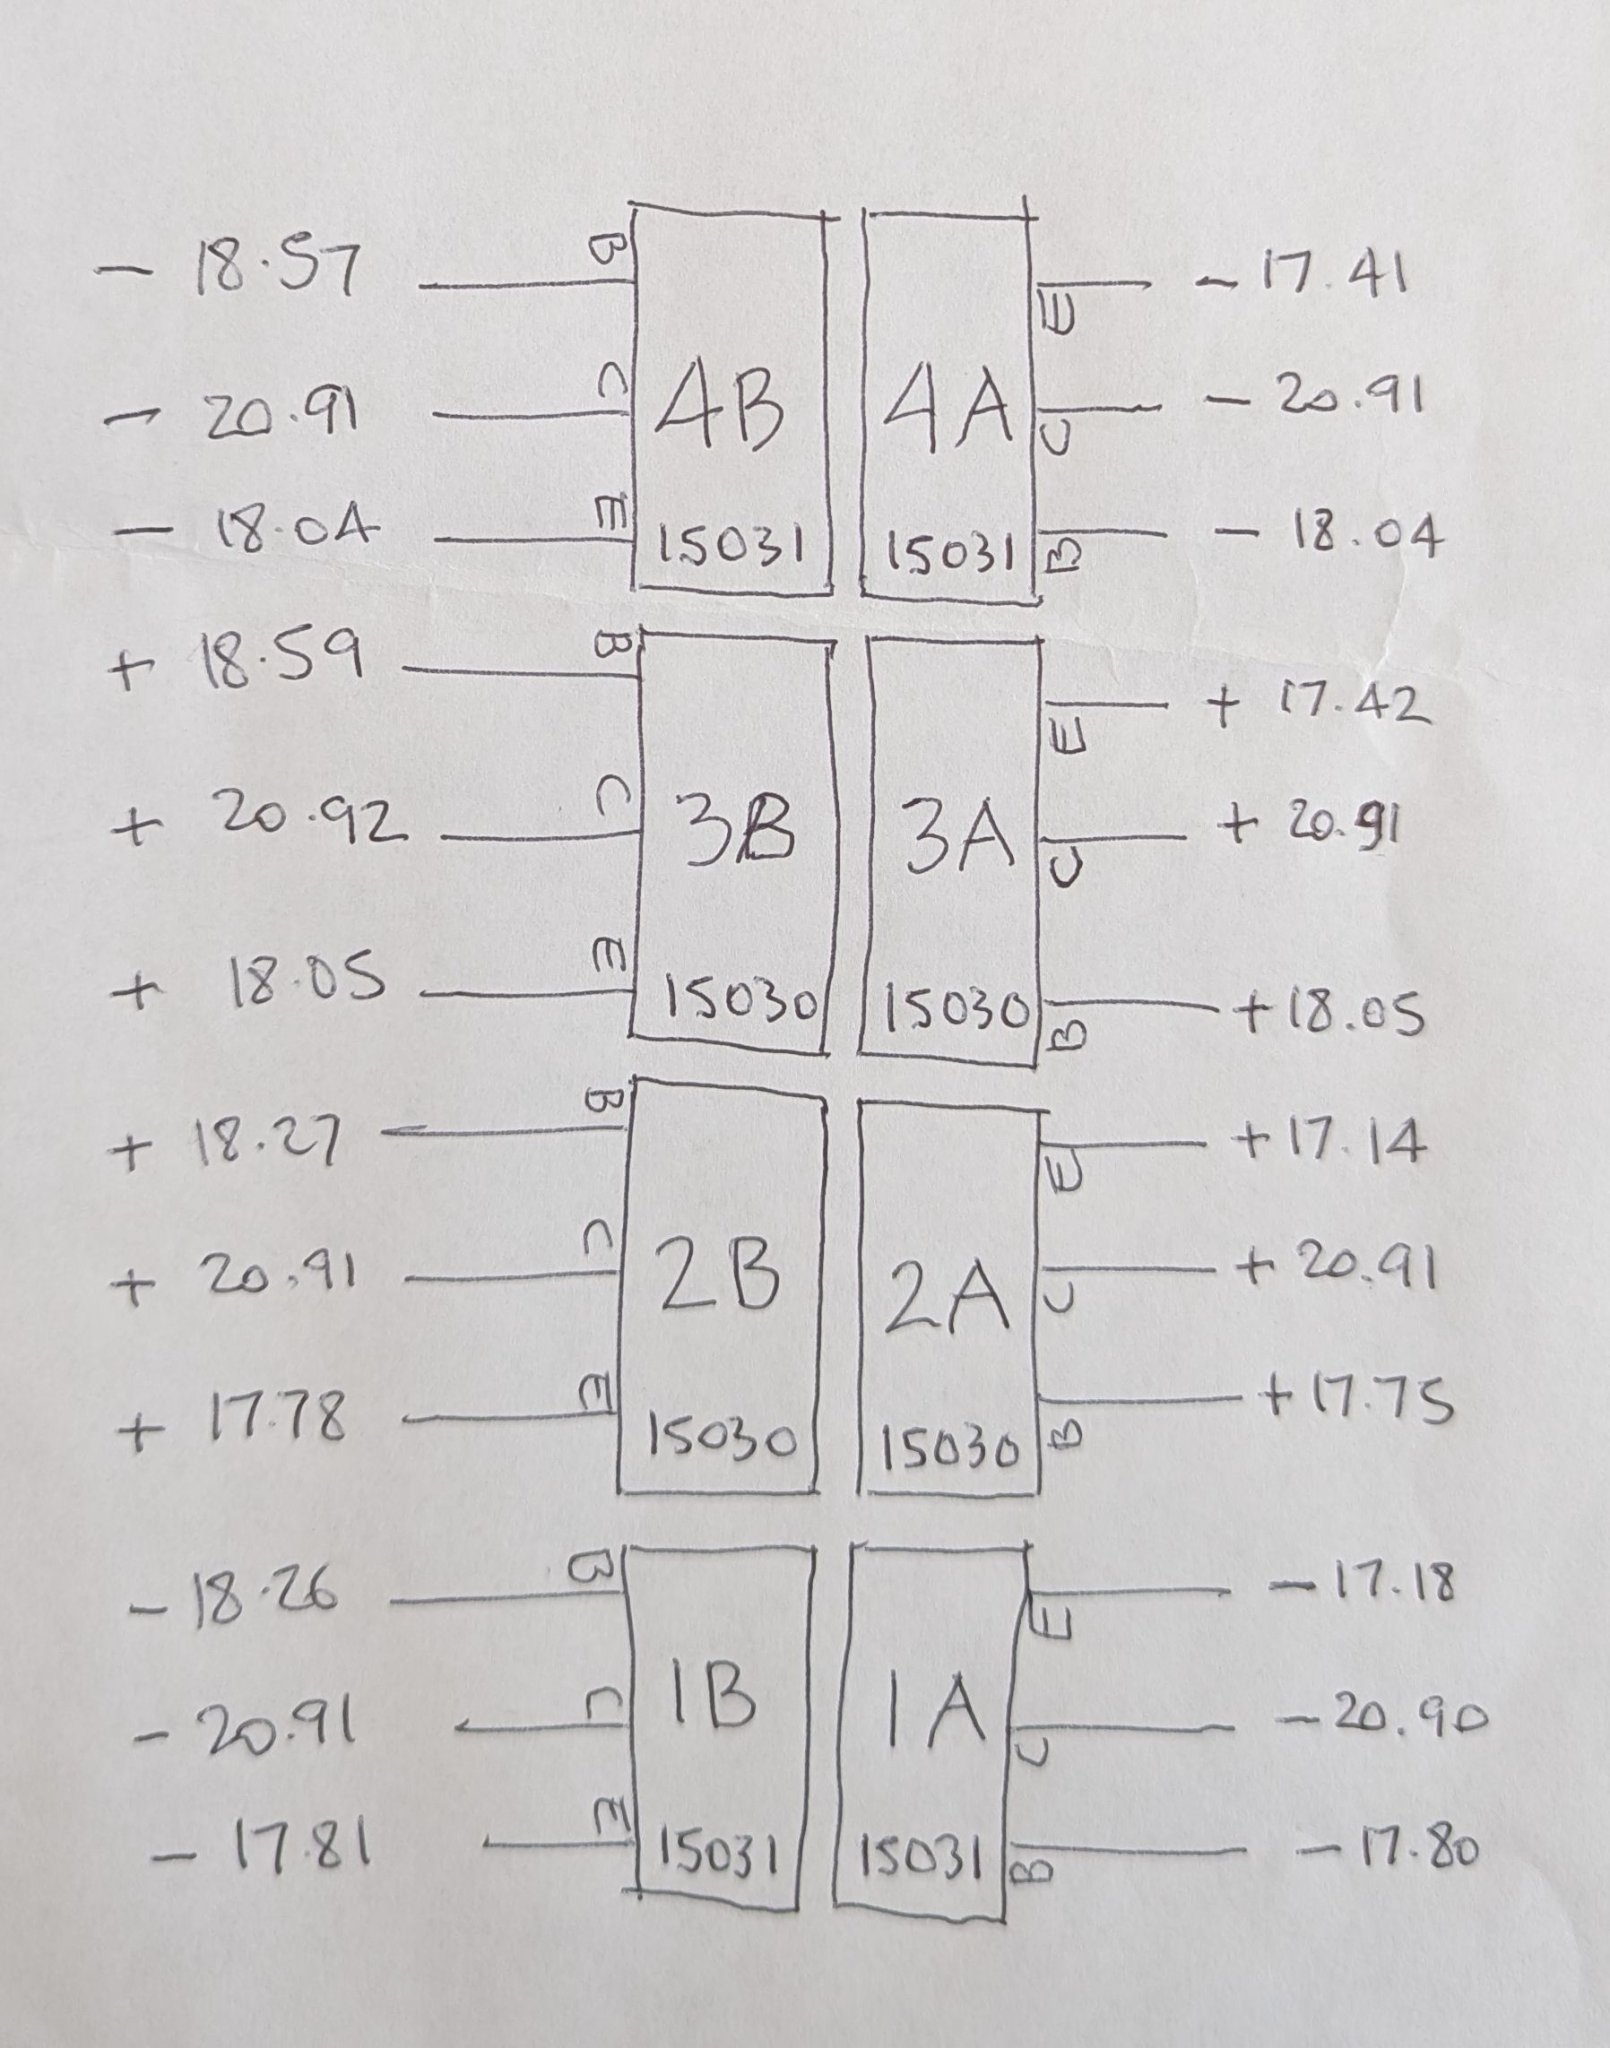 - 18.57 B E - 17.41
- 20.91 C 4B 4A C - 20.91
- 18.04 E 15031 15031 B - 18.04
+ 18.59 B E + 17.42
+ 20.92 C 3B 3A C + 20.91
+ 18.05 E 15030 15030 B +18.05
+ 18.27 B E +17.14
+ 20.91 C 2B 2A C + 20.91
+ 17.78 E 15030 15030 B +17.75
- 18.26 B E - 17.18
- 20.91 C 1B 1A C - 20.90
- 17.81 E 15031 15031 B - 17.80